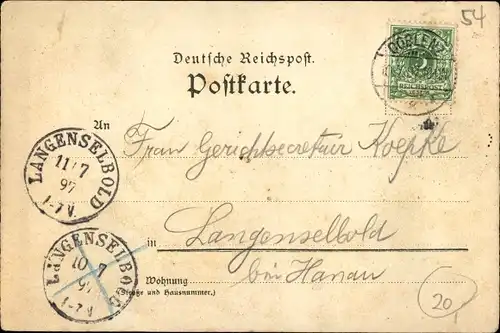 54
COBLENZ
Deutsche Reichspost.
Postkarte.
An
Frau Gerichtssecretair Koepke
LANGENSELBOLD
11/7
97
1-7 V.
in Langenselbold
LANGENSELBOLD
10 7
97
1-7 V.
bei Hanau
Wohnung
(Straße und Hausnummer.)
20,